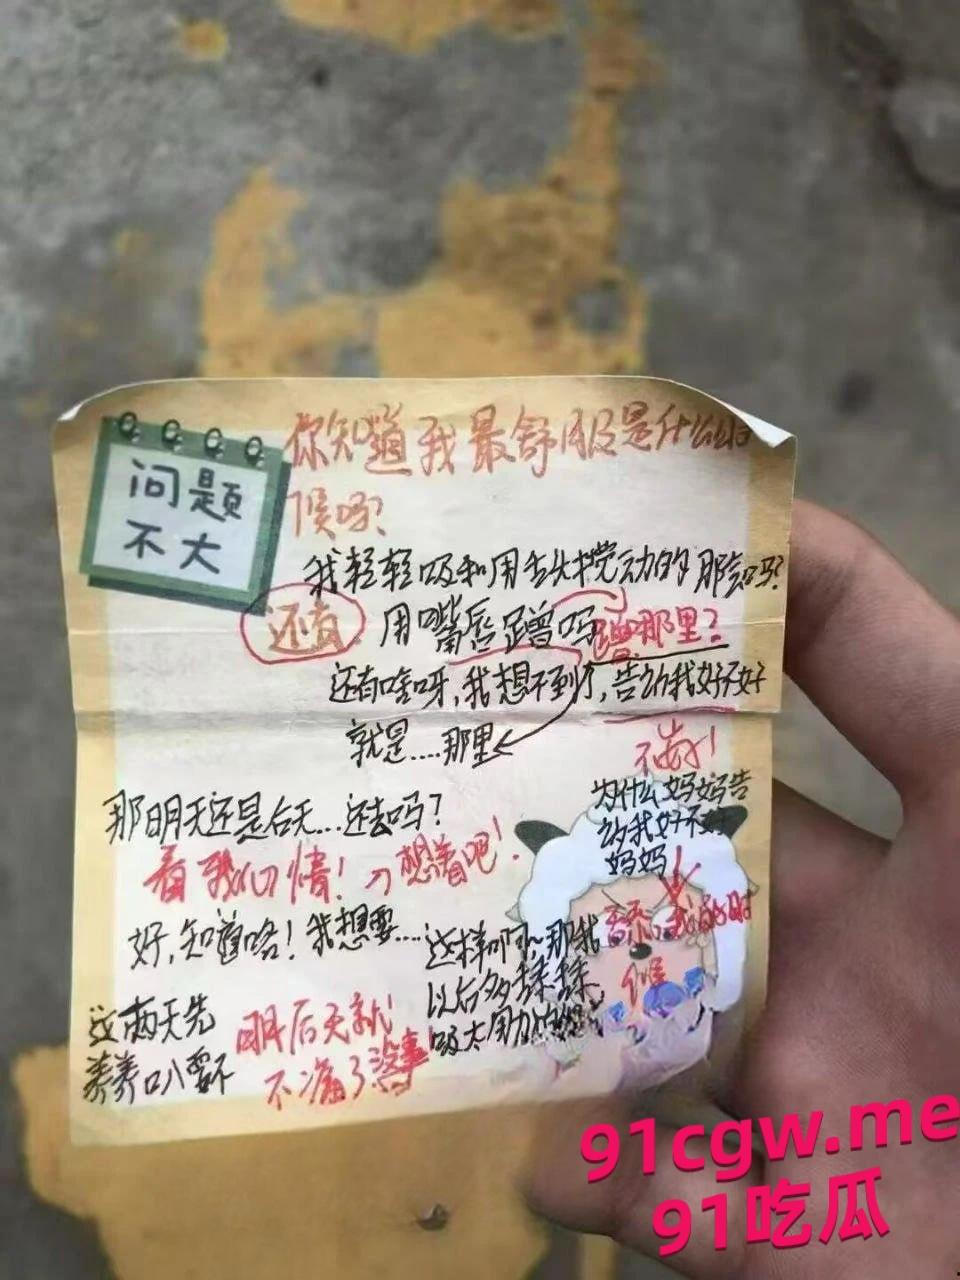 问题
不大
你知道我最舒服是什么时
候吗?
我轻轻吸和用舌头搅动的那会吗?
还有 用嘴唇蹭吗 蹭那里?
还有啥呀,我想不到了,告诉我好不好
就是....那里
不告!
为什么妈妈告
诉我好不好
妈妈
那明天还是后天...还去吗?
看我心情!想着吧!
好,知道咯!我想要....
我的时
候
这样啊~那我
以后多揉揉
吸太用力
这两天先
养养 要不
明后天就
不痛了没事
91cgw.me
91吃瓜